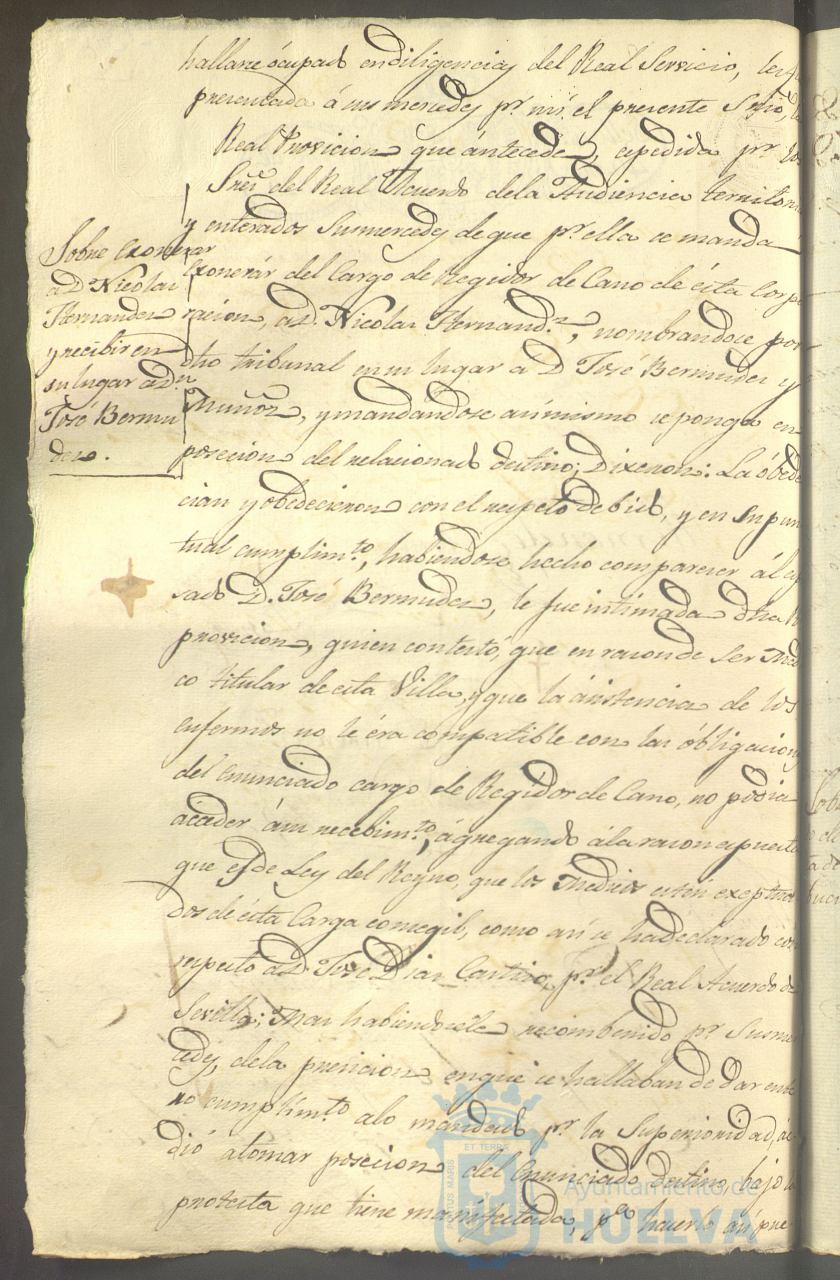 hallarse ócupado en diligencias del Real Servicio, les fue
presentada á sus mercedes pr. mi el presente Srio, la
Real Provicion que ántecede, espedida pr. los
Sres. del Real Acuerdo dela Audiencia territorial
y enterados Susmercedes de que pr. ella se mánda
Sobre Exonerar
a D. Nicolas
Hernandez
y recibir en
su lugar a Dn.
José Bermu
dez.
Exonerár del Cargo de Regidor de Cano de ésta Corpo
racion, a D. Nicolas Hernandz., nombrandose por
dho tribunal en su lugar a D José Bermudez y
Muñoz, y mandandose asimismo se ponga en
posecion del relacionado destino; Dixeron: La óbede
cian y óbedecieron con el respeto debido, y en su pun
tual cumplimto., habiendose hecho comparecer ál espre
sado D. José Bermudez, le fue intimada dha R
provicion, quien contestó, que en razon de ser Medi
co titular de esta Villa, y que la ásistencia de los
enfermos no le éra compatible con las óbligaciones
del Enunciado cargo de Regidor de Cano, no podia
acceder á su recebimto., ágregando á la razon espuesta
que es de Ley del Reyno, que los Medicos esten exeptua
dos de ésta Carga consegil, como asi se ha declarado con
respecto a D. Jose Dias Cantizo, pr. el Real Acuerdo de
Sevilla; Mas habiendosele recombenido pr. Susmer
cedes, dela presicion en que se hallaban de dar ente
ro cumplimto. alo mandado pr. la Superioridad, ác
dió atomar posecion del Enunciado destino, bajo la
protesta que tiene manifestada, po. hacerlo asi pue
ET TERRÆ
Ayuntamiento de
HUELVA